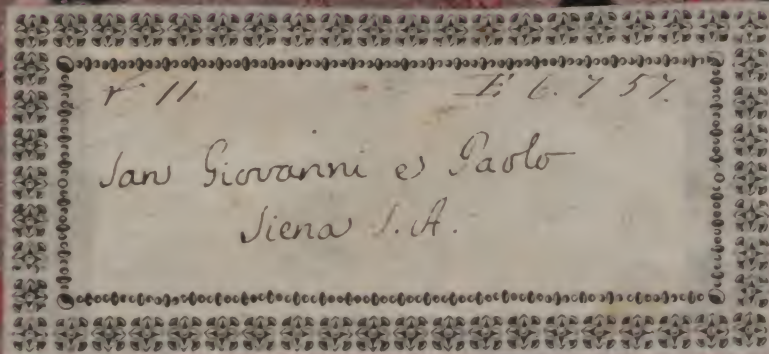 r 11. E 6. 7 57.
San Giovanni e Paolo
Siena S. A.